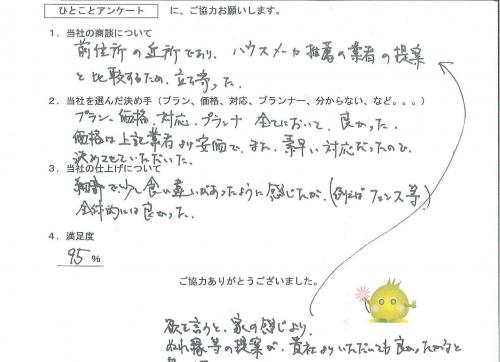 ひとことアンケート に、ご協力お願いします。
1．当社の商談について
前住所の近所であり、ハウスメーカ推薦の業者の提案
と比較するため、立ち寄った。
2．当社を選んだ決め手（プラン、価格、対応、プランナー、分からない、など。。。）
プラン、価格、対応、プランナ 全てにおいて、良かった。
価格は上記業者より安価で、また、素早い対応だったので、
決めさせていただいた。
3．当社の仕上げについて
細部で、少し食い違いがあったように感じたが、（例えばフェンス等）
全体的には良かった。
4．満足度
95 %
ご協力ありがとうございました。
欲を言うと、家の感じより、
ぬれ縁等の提案が、貴社よりいただいても良かったかなと